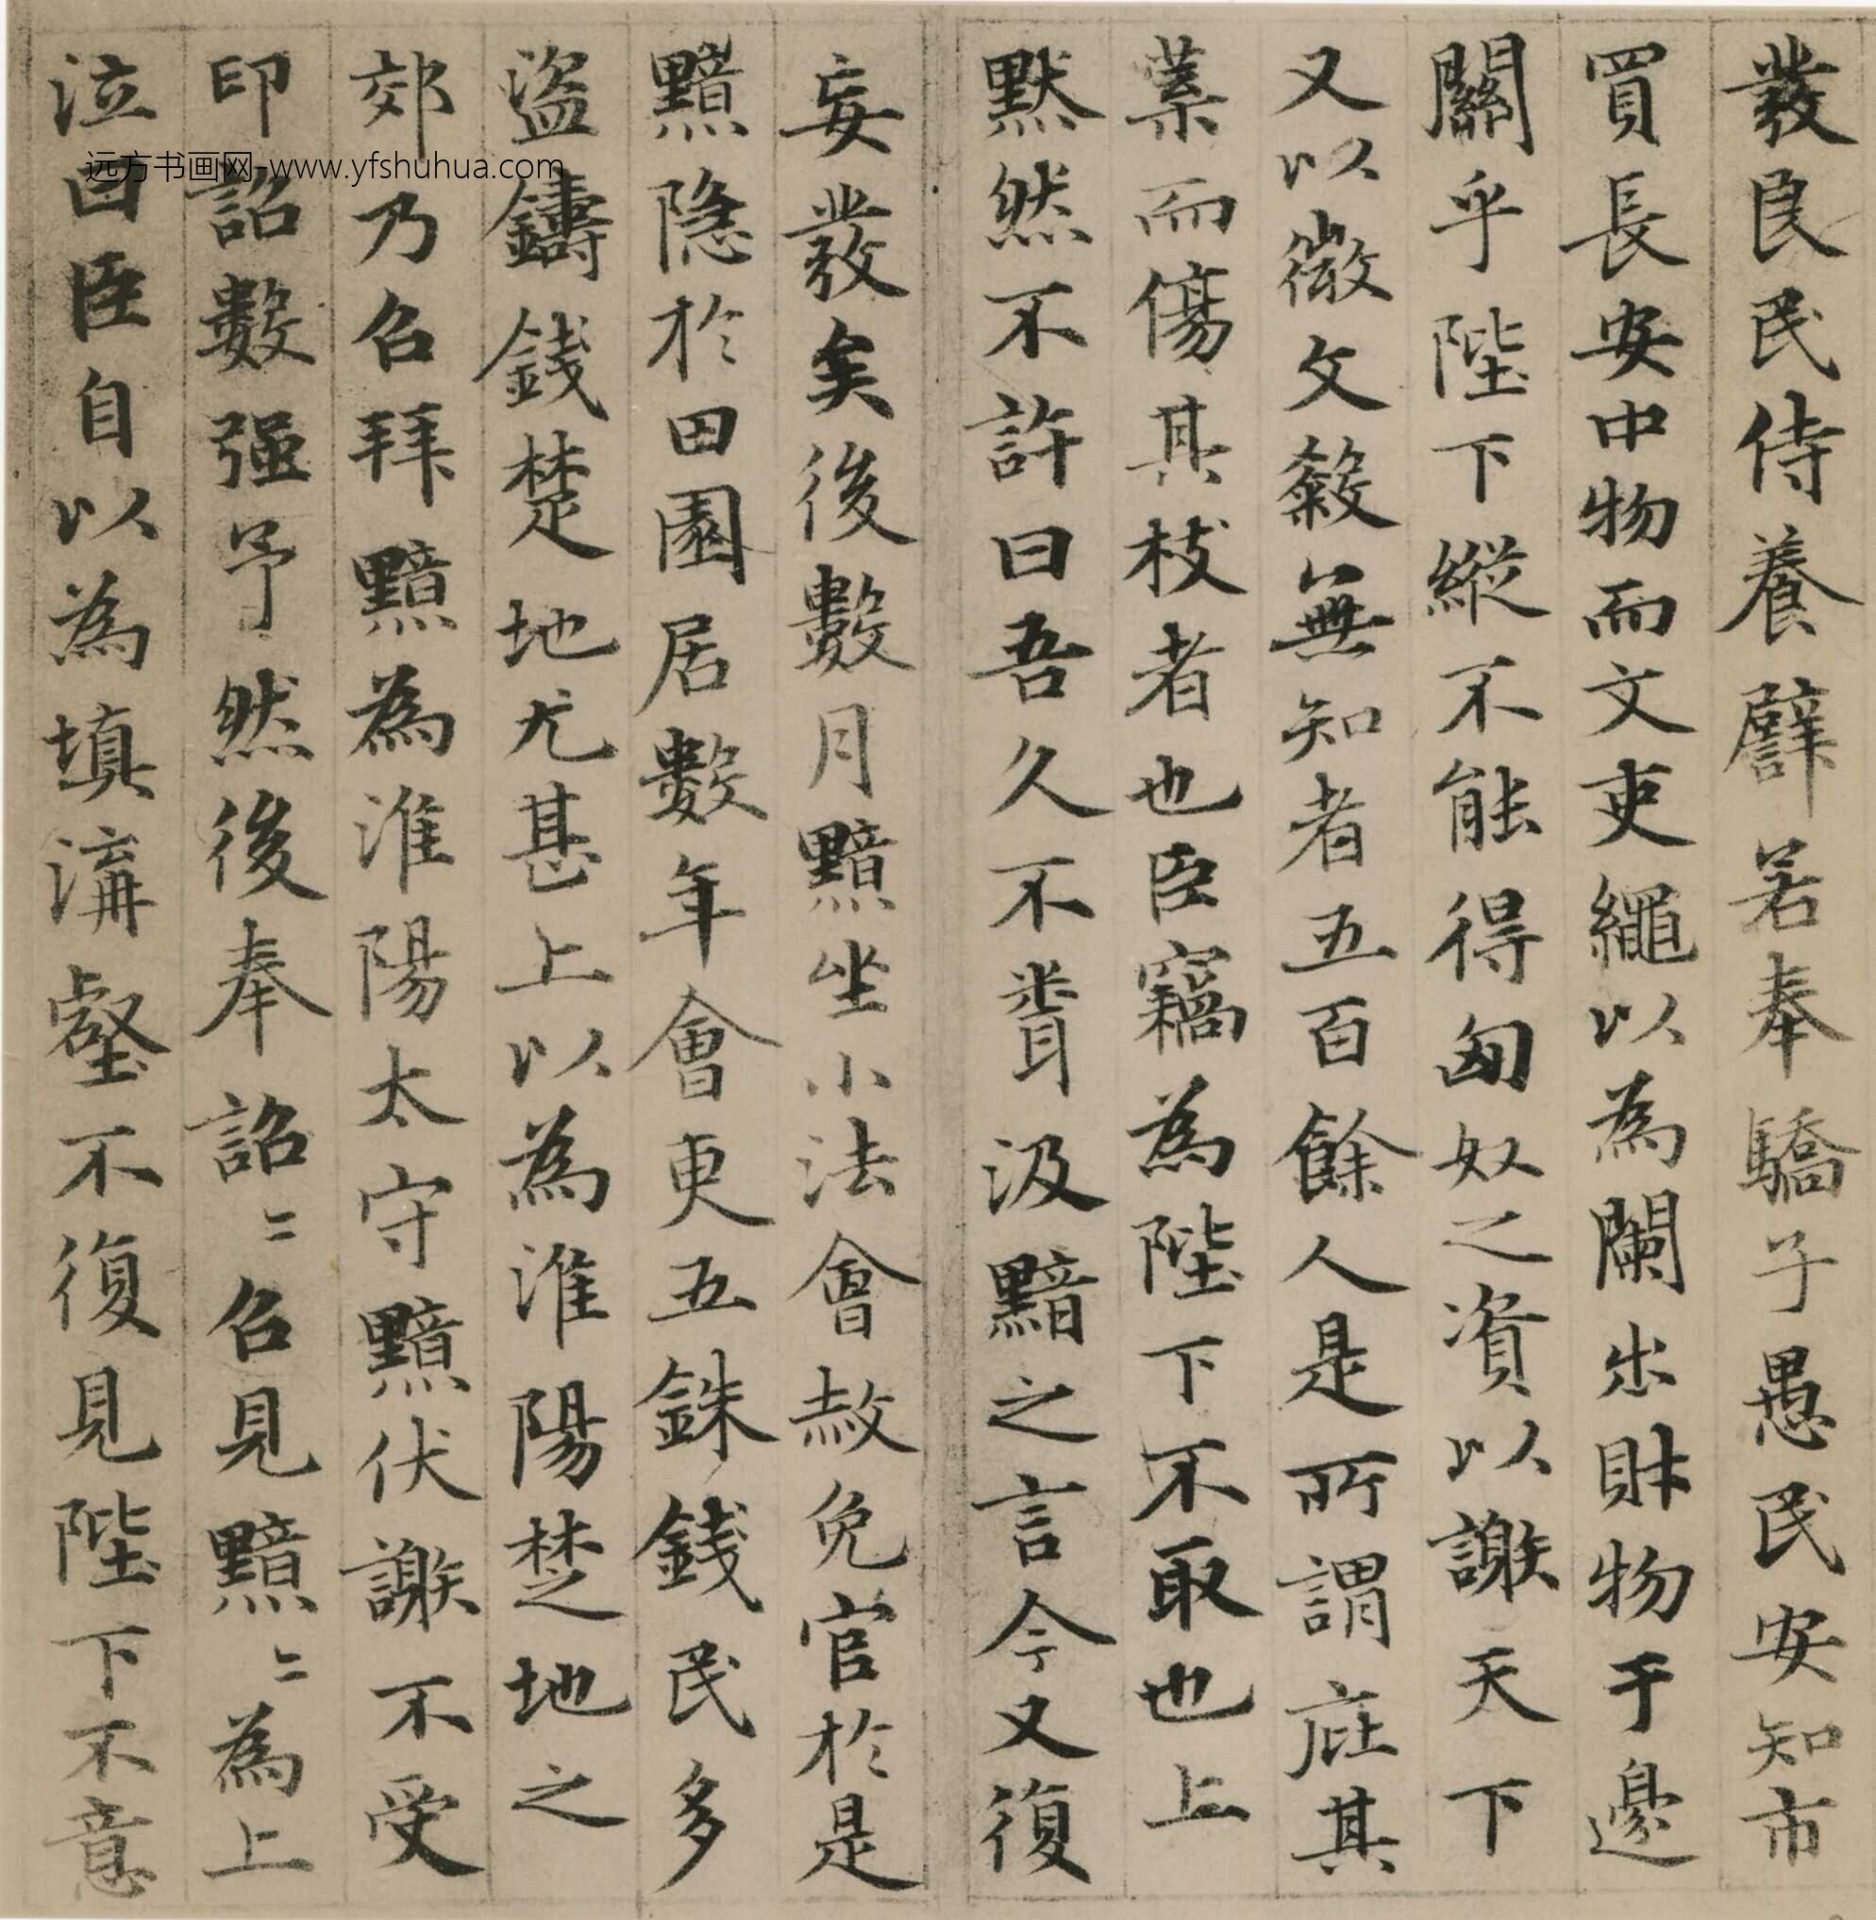 發良民侍養譬若奉驕子愚民安知市
買長安中物而文吏繩以為闌出財物于邊
關乎陛下縱不能得匈奴之資以謝天下
又以微文殺無知者五百餘人是所謂庇其
葉而傷其枝者也臣竊為陛下不取也上
默然不許曰吾久不聞汲黯之言今又復
妄發矣後數月黯坐小法會赦免官於是
黯隱於田園居數年會更五銖錢民多
盜鑄錢楚地尤甚上以為淮陽楚地之
郊乃召拜黯為淮陽太守黯伏謝不受
印詔數強予然後奉詔〻召見黯〻為上
泣曰臣自以為填溝壑不復見陛下不意
远方书画网-www.yfshuhua.com